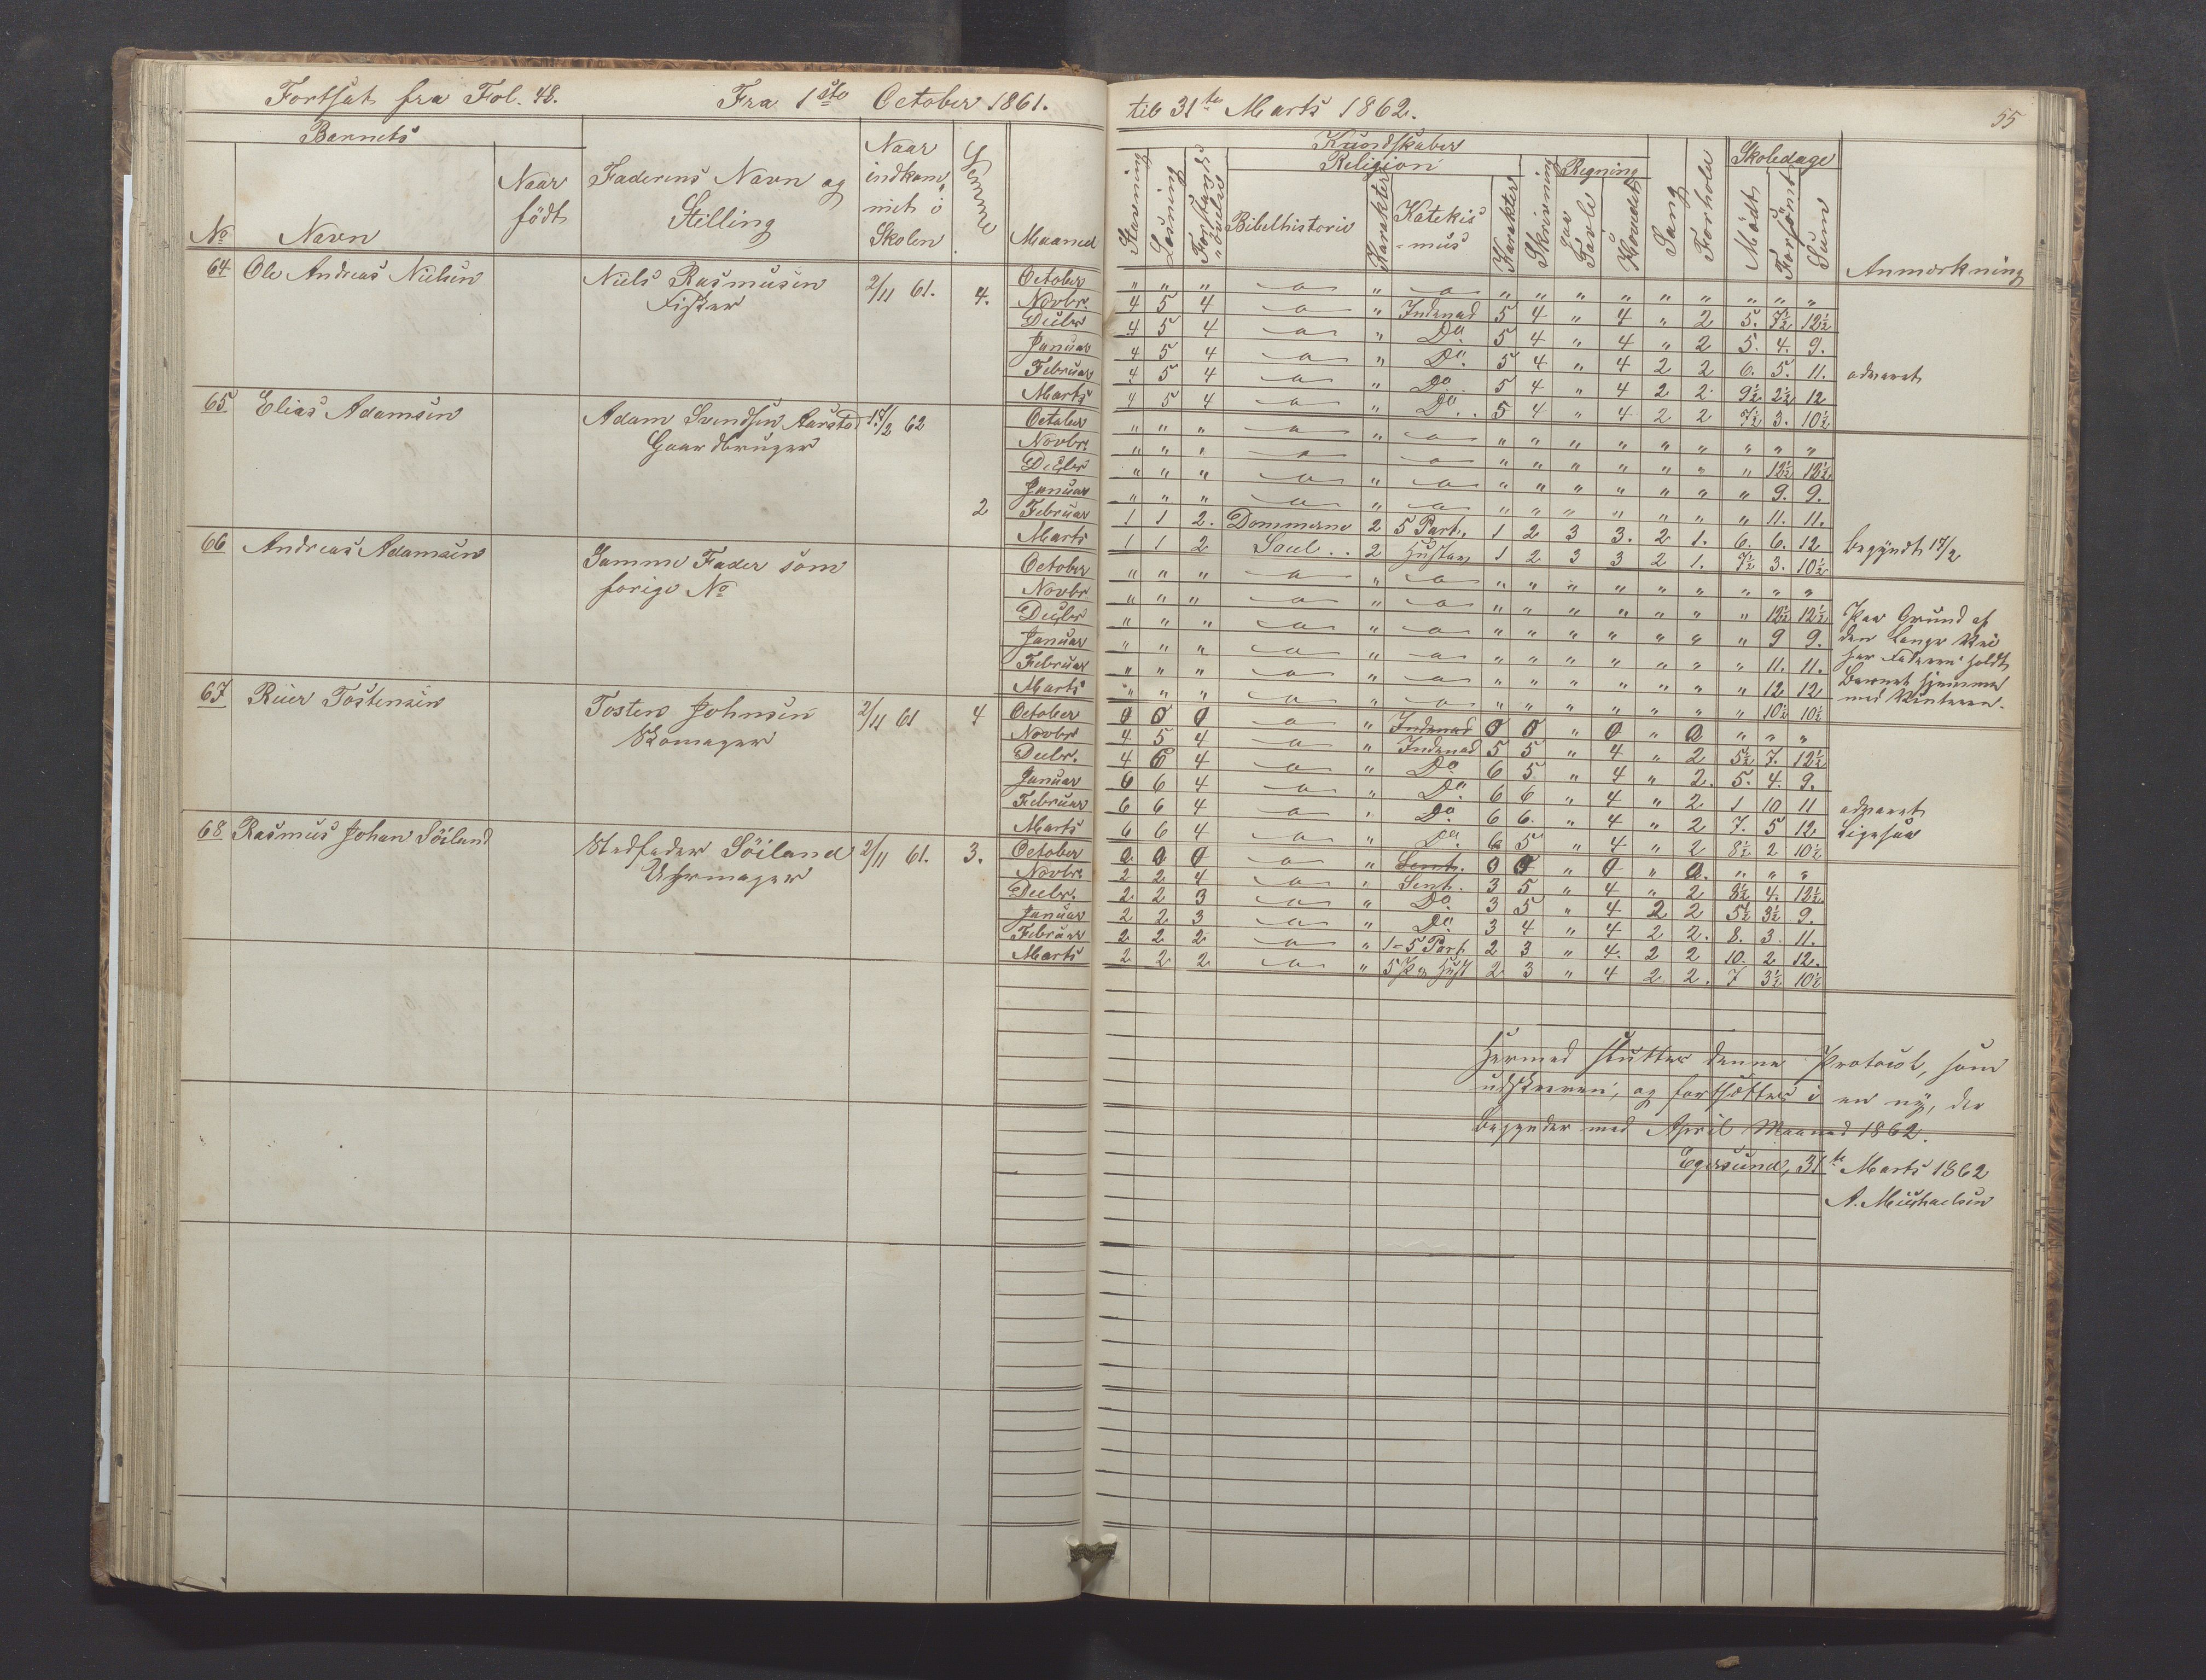 Fortsat fra Fol. 48. Fra 1ste October 1861.
til 31te Marts 1862. 55
Barnets
No Navn Naar födt Faderens Navn og Stilling Naar indkommet i Skolen Evne Maaned
Kundskaber
Religion Regning Skoledage
Stavning Læsning Forstands övelse Bibelhistorie Karakter Katekismus Karakter Skrivning paa Tavle i Hovedet Sang Forhold Mödt Forsömt Sum Anmærkning
64 Ole Andreas Nielsen Niels Rasmusen 2/11 61. 4.
Fisker
October " " " " " " " " " " " " " "
Novbr. 4 5 4 " Indenad 5 4 " 4 " 2 5. 7½ 12½
Decbr 4 5 4 " Do. 5 4 " 4 " 2 5. 4. 9.
Januar 4 5 4 " Do. 5 4 " 4 2 2 6. 5. 11. advaret
Februar 4 5 4 " Do. 5 4 " 4 2 2 9½ 2½ 12
Marts 4 5 4 " Do. 5 4 " 4 2 2 7½ 3. 10½
65 Elias Adamsen Adam Svendsen Aarstad 17/2 62
Gaardbruger
2
October " " " " " " " " " " " " " "
Novbr. " " " " " " " " " " " " 12½ 12½
Decbr " " " " " " " " " " " " 9. 9.
Januar " " " " " " " " " " " " 11. 11.
Februar 1 1 2. Dommerne 2 5 Part. 1 2 3 3. 2 1. 6. 6. 12 begyndt 17/2
Marts 1 1 2 Saul .. 2 Hustav 1 2 3 3 2 1. 7½ 3. 10½
66 Andreas Adamsen Samme Fader som
forige No
October " " " " " " " " " " " " " "
Novbr " " " " " " " " " " " " 12½ 12½
Decbr " " " " " " " " " " " " 9 9.
Januar " " " " " " " " " " " " 11. 11.
Februar " " " " " " " " " " " " 12 12
Marts " " " " " " " " " " " " 10½ 10½
Paa Grund af
den lange Vei
har Faderen holdt
Barnet hjemme
ved Vinteren.
67 Reier Tostensen Tosten Johnsen 2/11 61 4
Skomager
October 0 0 0 " Indenad 0 0 " 0 " 0 " " "
Novbr 4 5 4 " Indenad 5 5 " 4 " 2 5½ 7. 12½
Decbr. 4 6 4 " Do. 6 5 " 4 " 2. 5. 4. 9.
Januar 6 6 4 " Do. 6 6 " 4 " 2 1 10 11 advaret
Februar 6 6 4 " Do 6 6. " 4 " 2 7. 5 12 Ligesaa
Marts 6 6 4 " Do. 6 5 " 4 " 2 8½ 2 10½
68 Rasmus Johan Söiland Stedfader Söiland 2/11 61. 3.
Uhrmager
October 0 0 0 " Sent. 0 0 " 0 " 0. " " "
Novbr 2 2 4 " Sent. 3 5 " 4 " 2 8½ 4. 12½
Decbr. 2 2 3 " Do. 3 5 " 4 2 2 5½ 3½ 9.
Januar 2 2 3 " Do. 3 4 " 4 2 2. 8. 3. 11.
Februar 2 2 2 " 1-5 Part. 2 3 " 4. 2 2 10. 2 12.
Marts 2 2 2 " 5 P. & Hust 2 3 " 4 2 2. 7 3½ 10½
Hermed sluttes denne Protocol, som
udskreven, og fortsættes i en ny, der
begynder med April Maaned 1862.
Egersund, 31te Marts 1862
A. Michaelsen